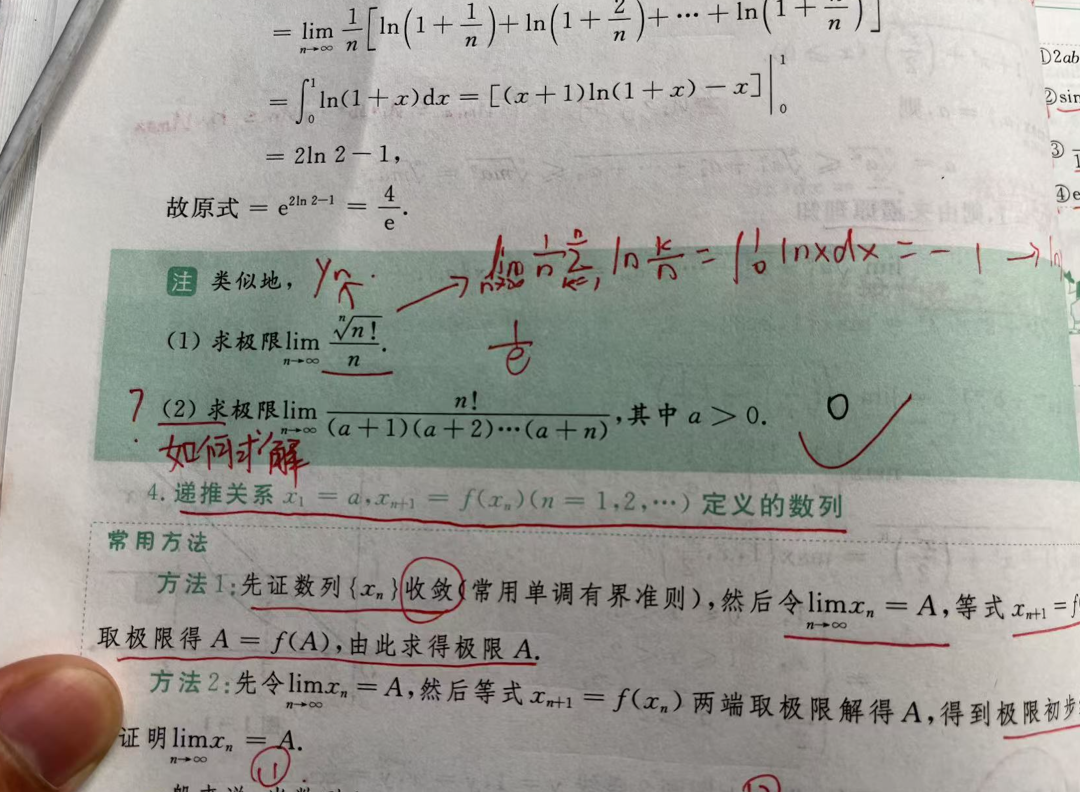 = lim_{n→∞} 1/n [ln(1 + 1/n) + ln(1 + 2/n) + ⋯ + ln(1 + n/n)]
①2ab
= ∫₀¹ ln(1 + x)dx = [(x + 1)ln(1 + x) − x]|₀¹
②sin
= 2ln 2 − 1,
③
故原式 = e^{2ln 2−1} = 4/e.
④e
注 类似地,
lim_{n→∞} 1/n Σ_{k=1}^{n} ln k/n = ∫₀¹ lnxdx = −1 →
(1) 求极限 lim_{n→∞} ⁿ√n!/n.
1/e
? (2) 求极限 lim_{n→∞} n!/((a + 1)(a + 2)⋯(a + n)), 其中 a > 0.
0
如何求解
4. 递推关系 x₁ = a, xₙ₊₁ = f(xₙ)(n = 1,2,⋯) 定义的数列
常用方法
方法1:先证数列{xₙ}收敛(常用单调有界准则),然后令 lim_{n→∞} xₙ = A,等式 xₙ₊₁ = f
取极限得 A = f(A),由此求得极限 A.
方法2:先令 lim_{n→∞} xₙ = A,然后等式 xₙ₊₁ = f(xₙ) 两端取极限解得 A,得到极限初步
证明 lim_{n→∞} xₙ = A.